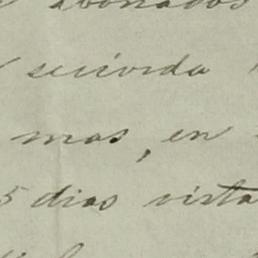 abonados
servirda
mas, en
5 dias vista